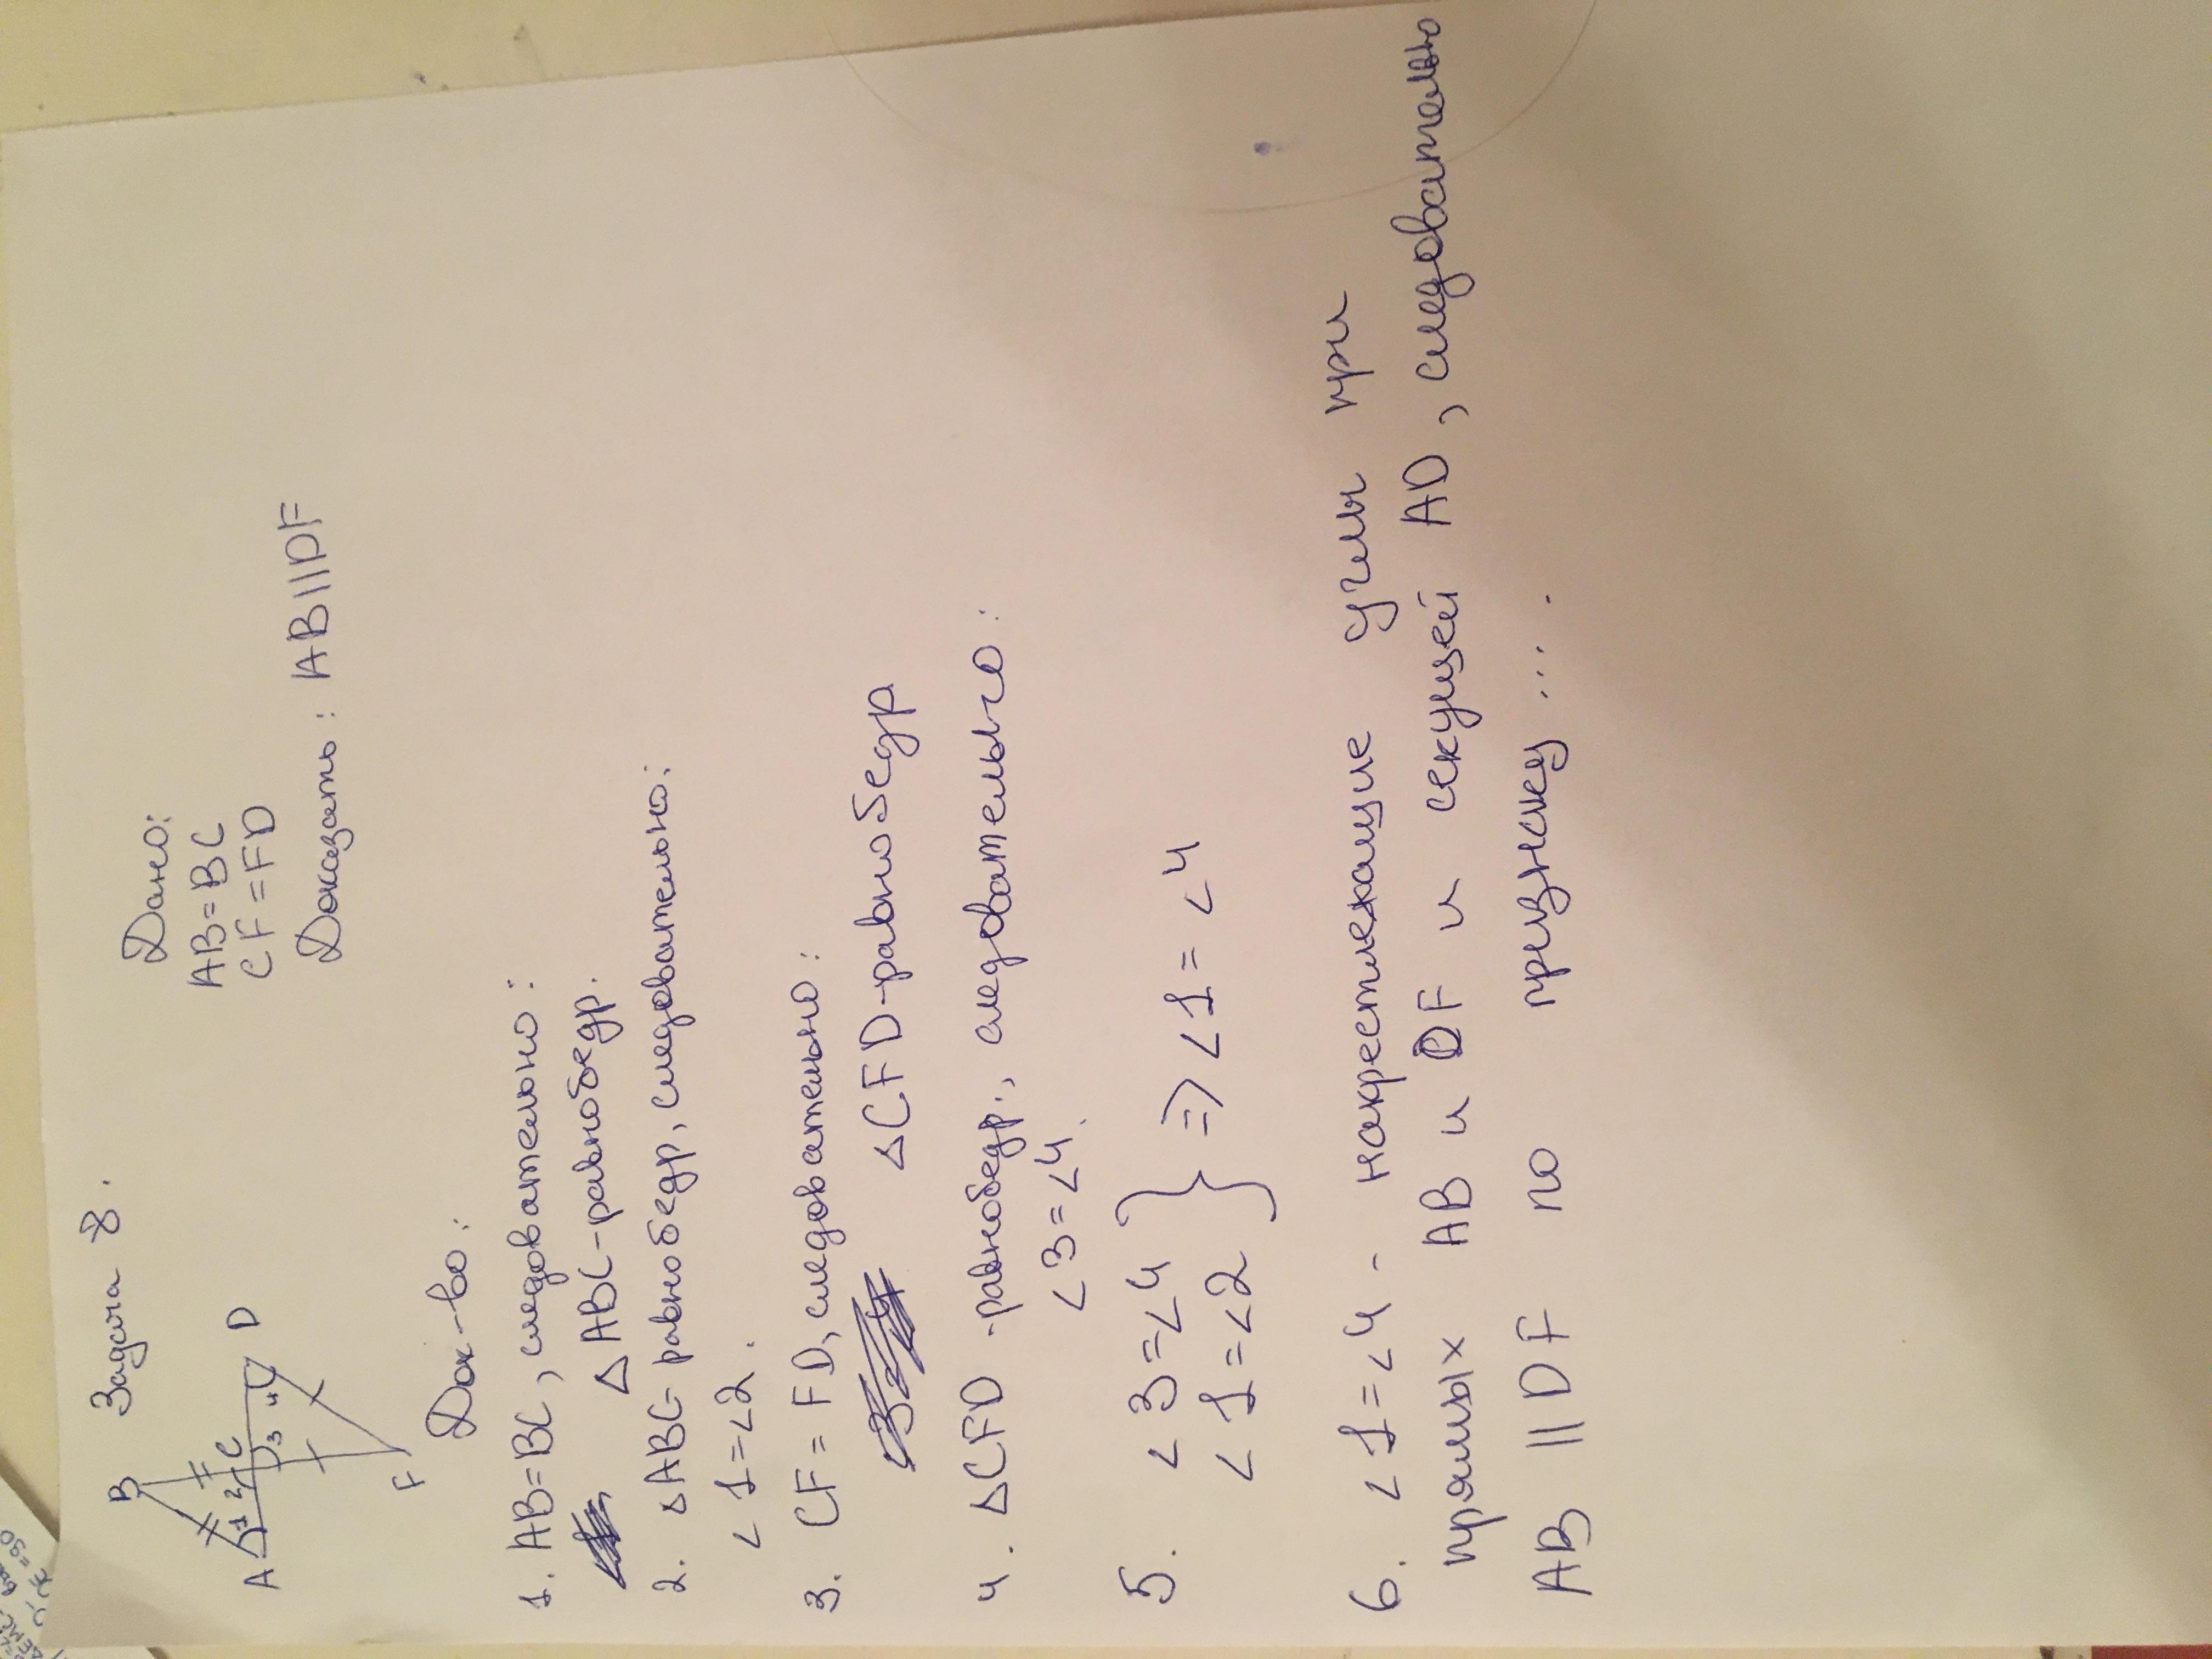 Задача 8.
B
A
1
2
C
3
4
D
F
Дано:
AB=BC
CF=FD
Доказать: AB||DF
Док-во:
1. AB=BC, следовательно:
△ABC-равнобедр.
2. △ABC-равнобедр, следовательно:
<1=<2.
3. CF=FD, следовательно:
△CFD-равнобедр
4. △CFD-равнобедр., следовательно:
<3=<4.
5. <3=<4
<1=<2 } => <1=<4
6. <1=<4 - накрестлежащие углы при
прямых AB и DF и секущей AD, следовательно
AB || DF по признаку ....
=90